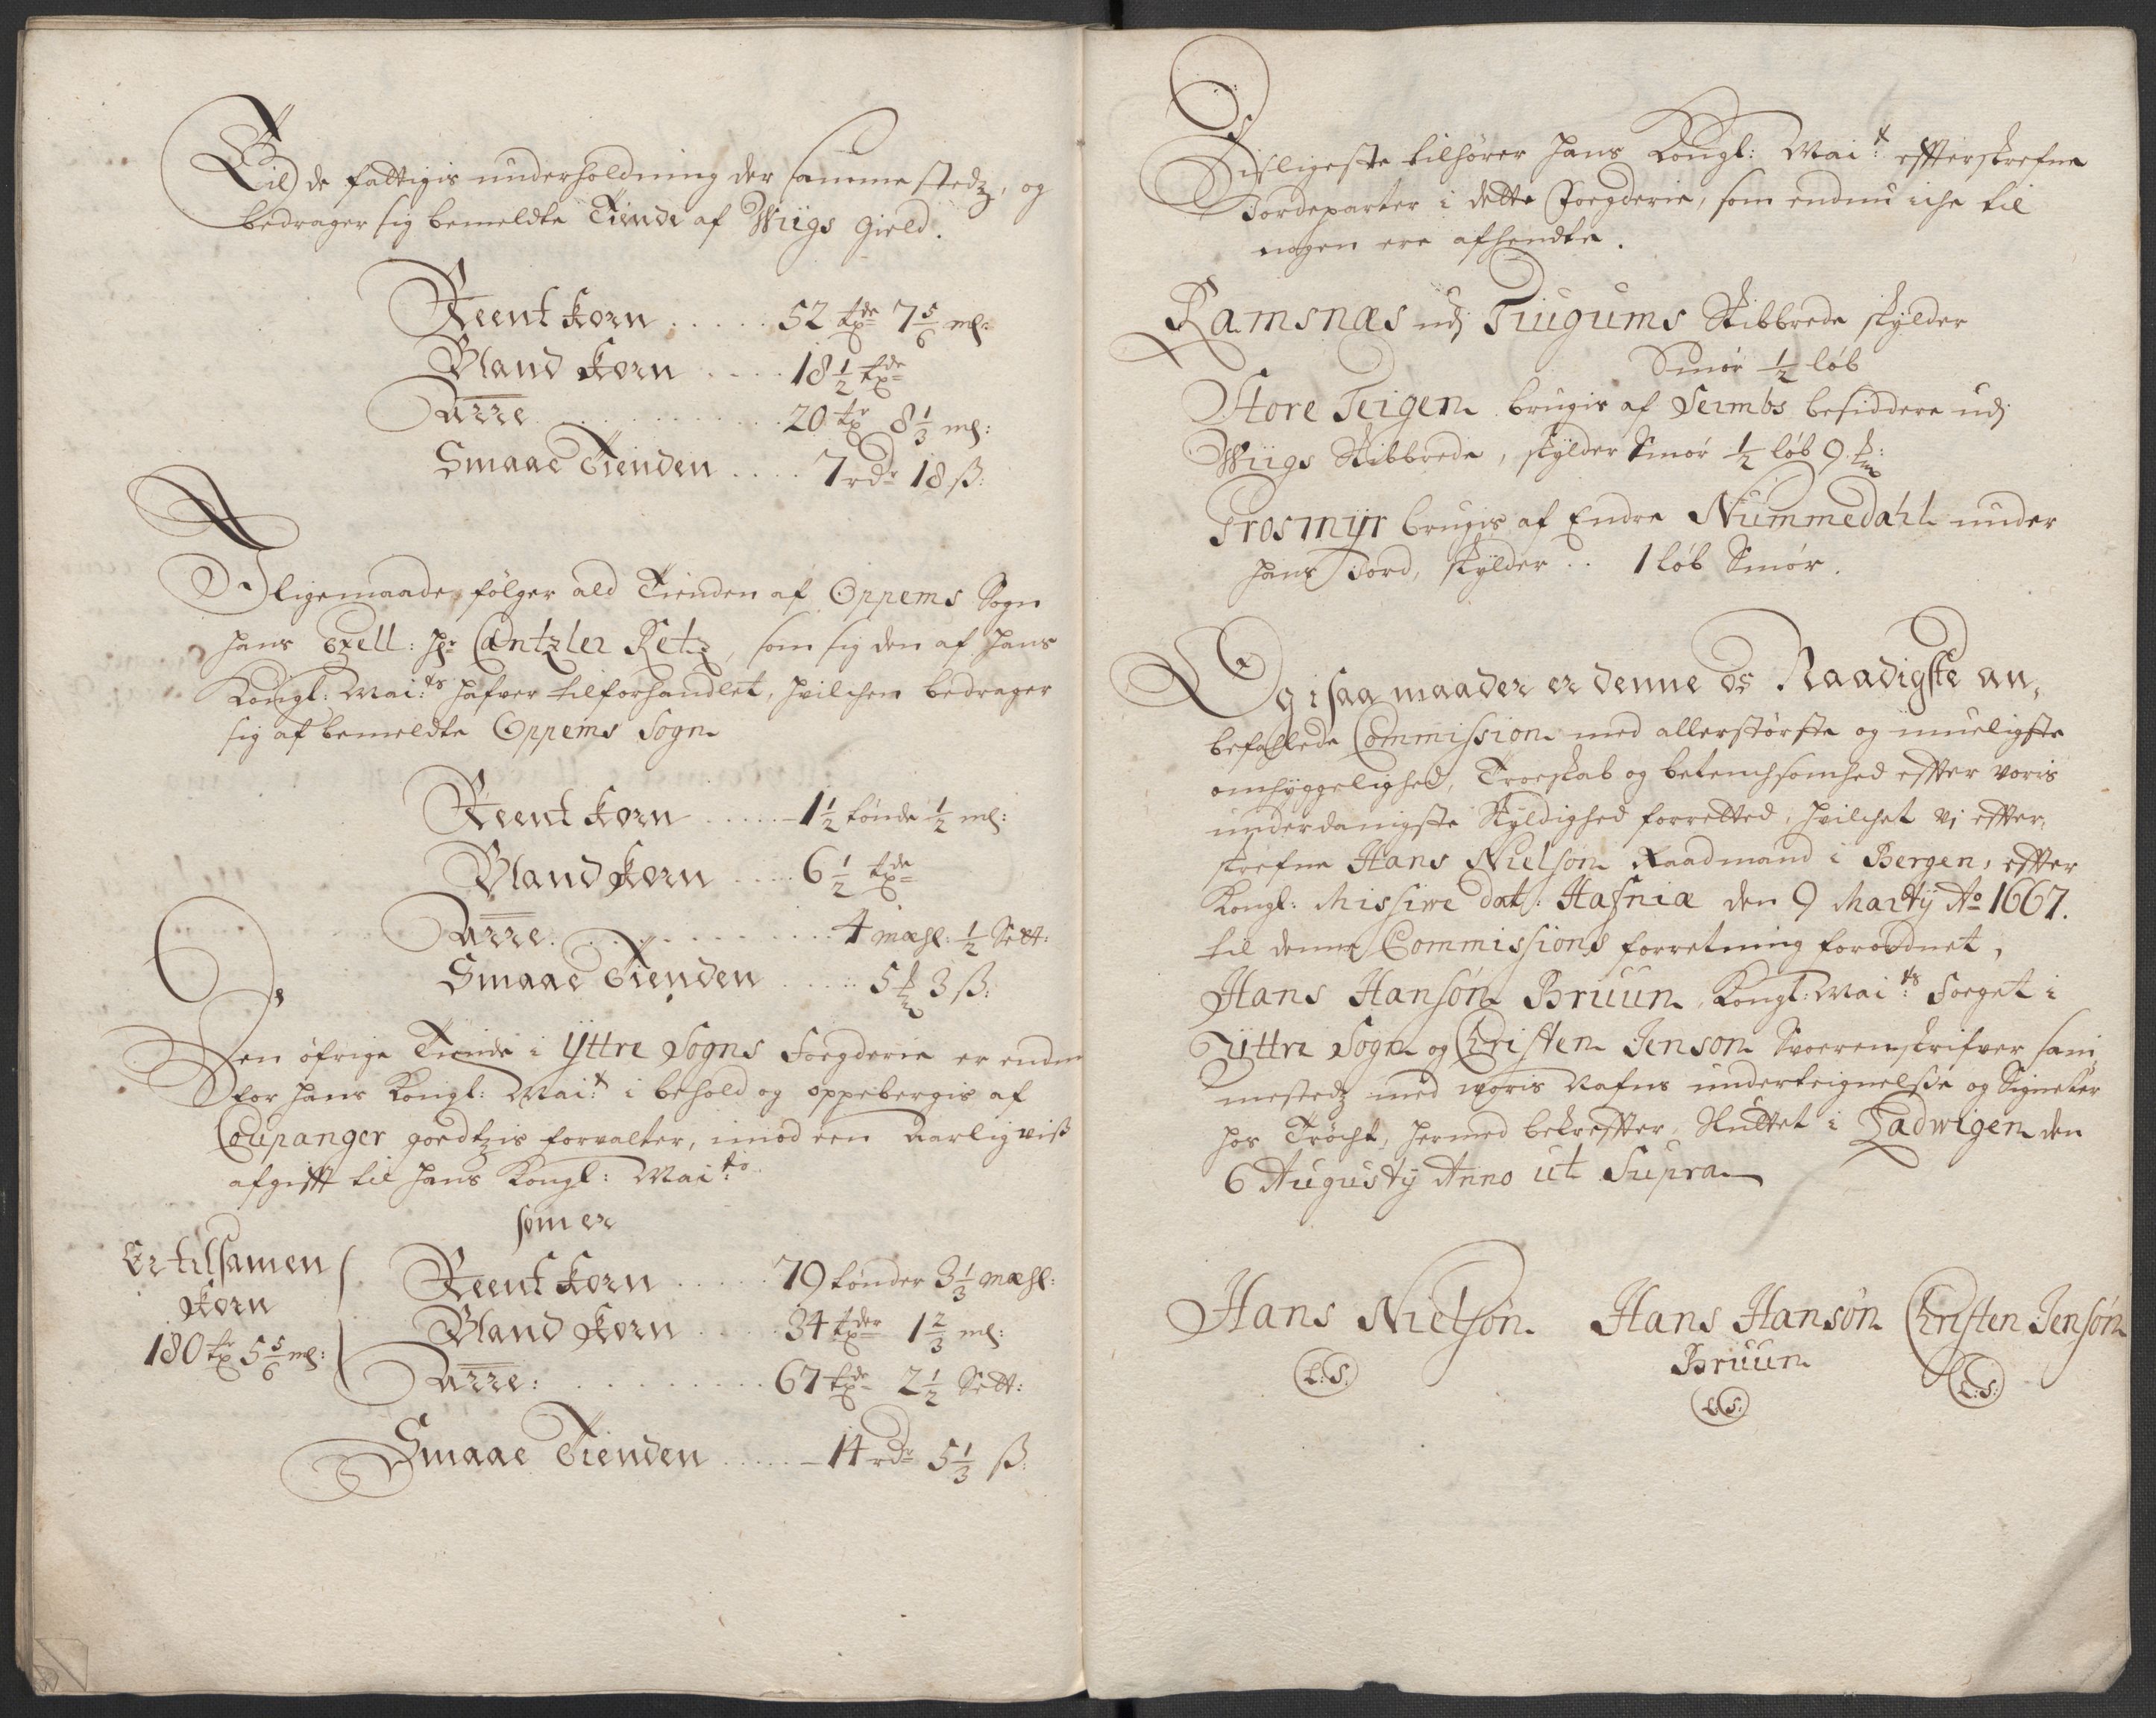 Til de fattigis underholdning der samme stedz, og
bedrager sig bemeldte Tiende af Wiigs gield.
Reent korn . . . . . 52 tde 7 5/6 ml:
Bland korn . . . . 18 1/2 tde
Aurre . . . . . . . . . 20 tr 8 1/3 ml:
Smaae Tienden . . . . 7 rdr 18 ß:
I ligemaade følger ald Tienden af Oppems Sogn
hans Exell: Hr Cantzler Retz, som sig den af hans
Kongl: Mai:ts hafver tilforhandlet, hvilchen bedrager
sig af bemeldte Oppems Sogn
Reent korn . . . . . 1 1/2 tønde 1/2 ml:
Bland korn . . . . 6 1/2 tde
Aurre . . . . . . . . . 4 mæhl: 1/2 Sett:
Smaae Tienden . . . . . 5 3 ß:
Den øfrige Tiende i Yttre Sogns Foegderie er endnu
for hans Kongl: Mai:t i behold og oppebergis af
Coupanger goedtzis forvalter, imod een Aarlig viß
afgifft til hans Kongl: Mai:ts
som er
Er tilsamen
Korn
180 tr 5 5/6 ml:
Reent korn . . . . . 79 tønder 3 1/3 mæhl:
Bland korn . . . . . 34 tder 1 2/3 ml:
Aurre: . . . . . . . . . 67 tde 2 1/2 Sett:
Smaae Tienden . . . . . 14 rdr 5 1/3 ß:
Disligeste tilhører hans Kongl: Mai:t effterskrefne
Jordeparter i dette Foegderie, som endnu iche til
nogen ere afhendte.
Ramsnæs udj Tiugums Skibbrede skylder
Smør 1/2 løb
Store Teigen brugis af Seimbs besiddere udj
Wiigs Skibbrede, skylder Smør 1/2 løb 9
Frosmyr brugis af Endre Nummedahl under
hans Jord, skylder . . 1 løb Smør.
Og i saa maader er denne os Naadigste an,
befahlede Commission med allerstørste og mueligste
omhyggelighed, Troeskab og betenchsomhed effter voris
underdanigste Skyldighed forretted, hvilchet vi effter,
skrefne Hans Nielsøn Raadmand i Bergen, effter
Kongl: Missive dat: Hafniæ den 9 Martij Ao 1667.
til denne Commissions forretning forordnet,
Hans Hansøn Bruun, Kongl: Mai:ts Foeget i
Yttre Sogn og Christen Jenson Svorenskrifver sam,
mestedz med woris Nafns underteignelße og Signeter
hos Tröcht, hermed bekreffter, Sluttet i Ladwigen den
6 Augustij Anno ut Supra
Hans Nielsøn Hans Hansøn Christen Jensøn
Bruun
L: S. L: S: L: S: